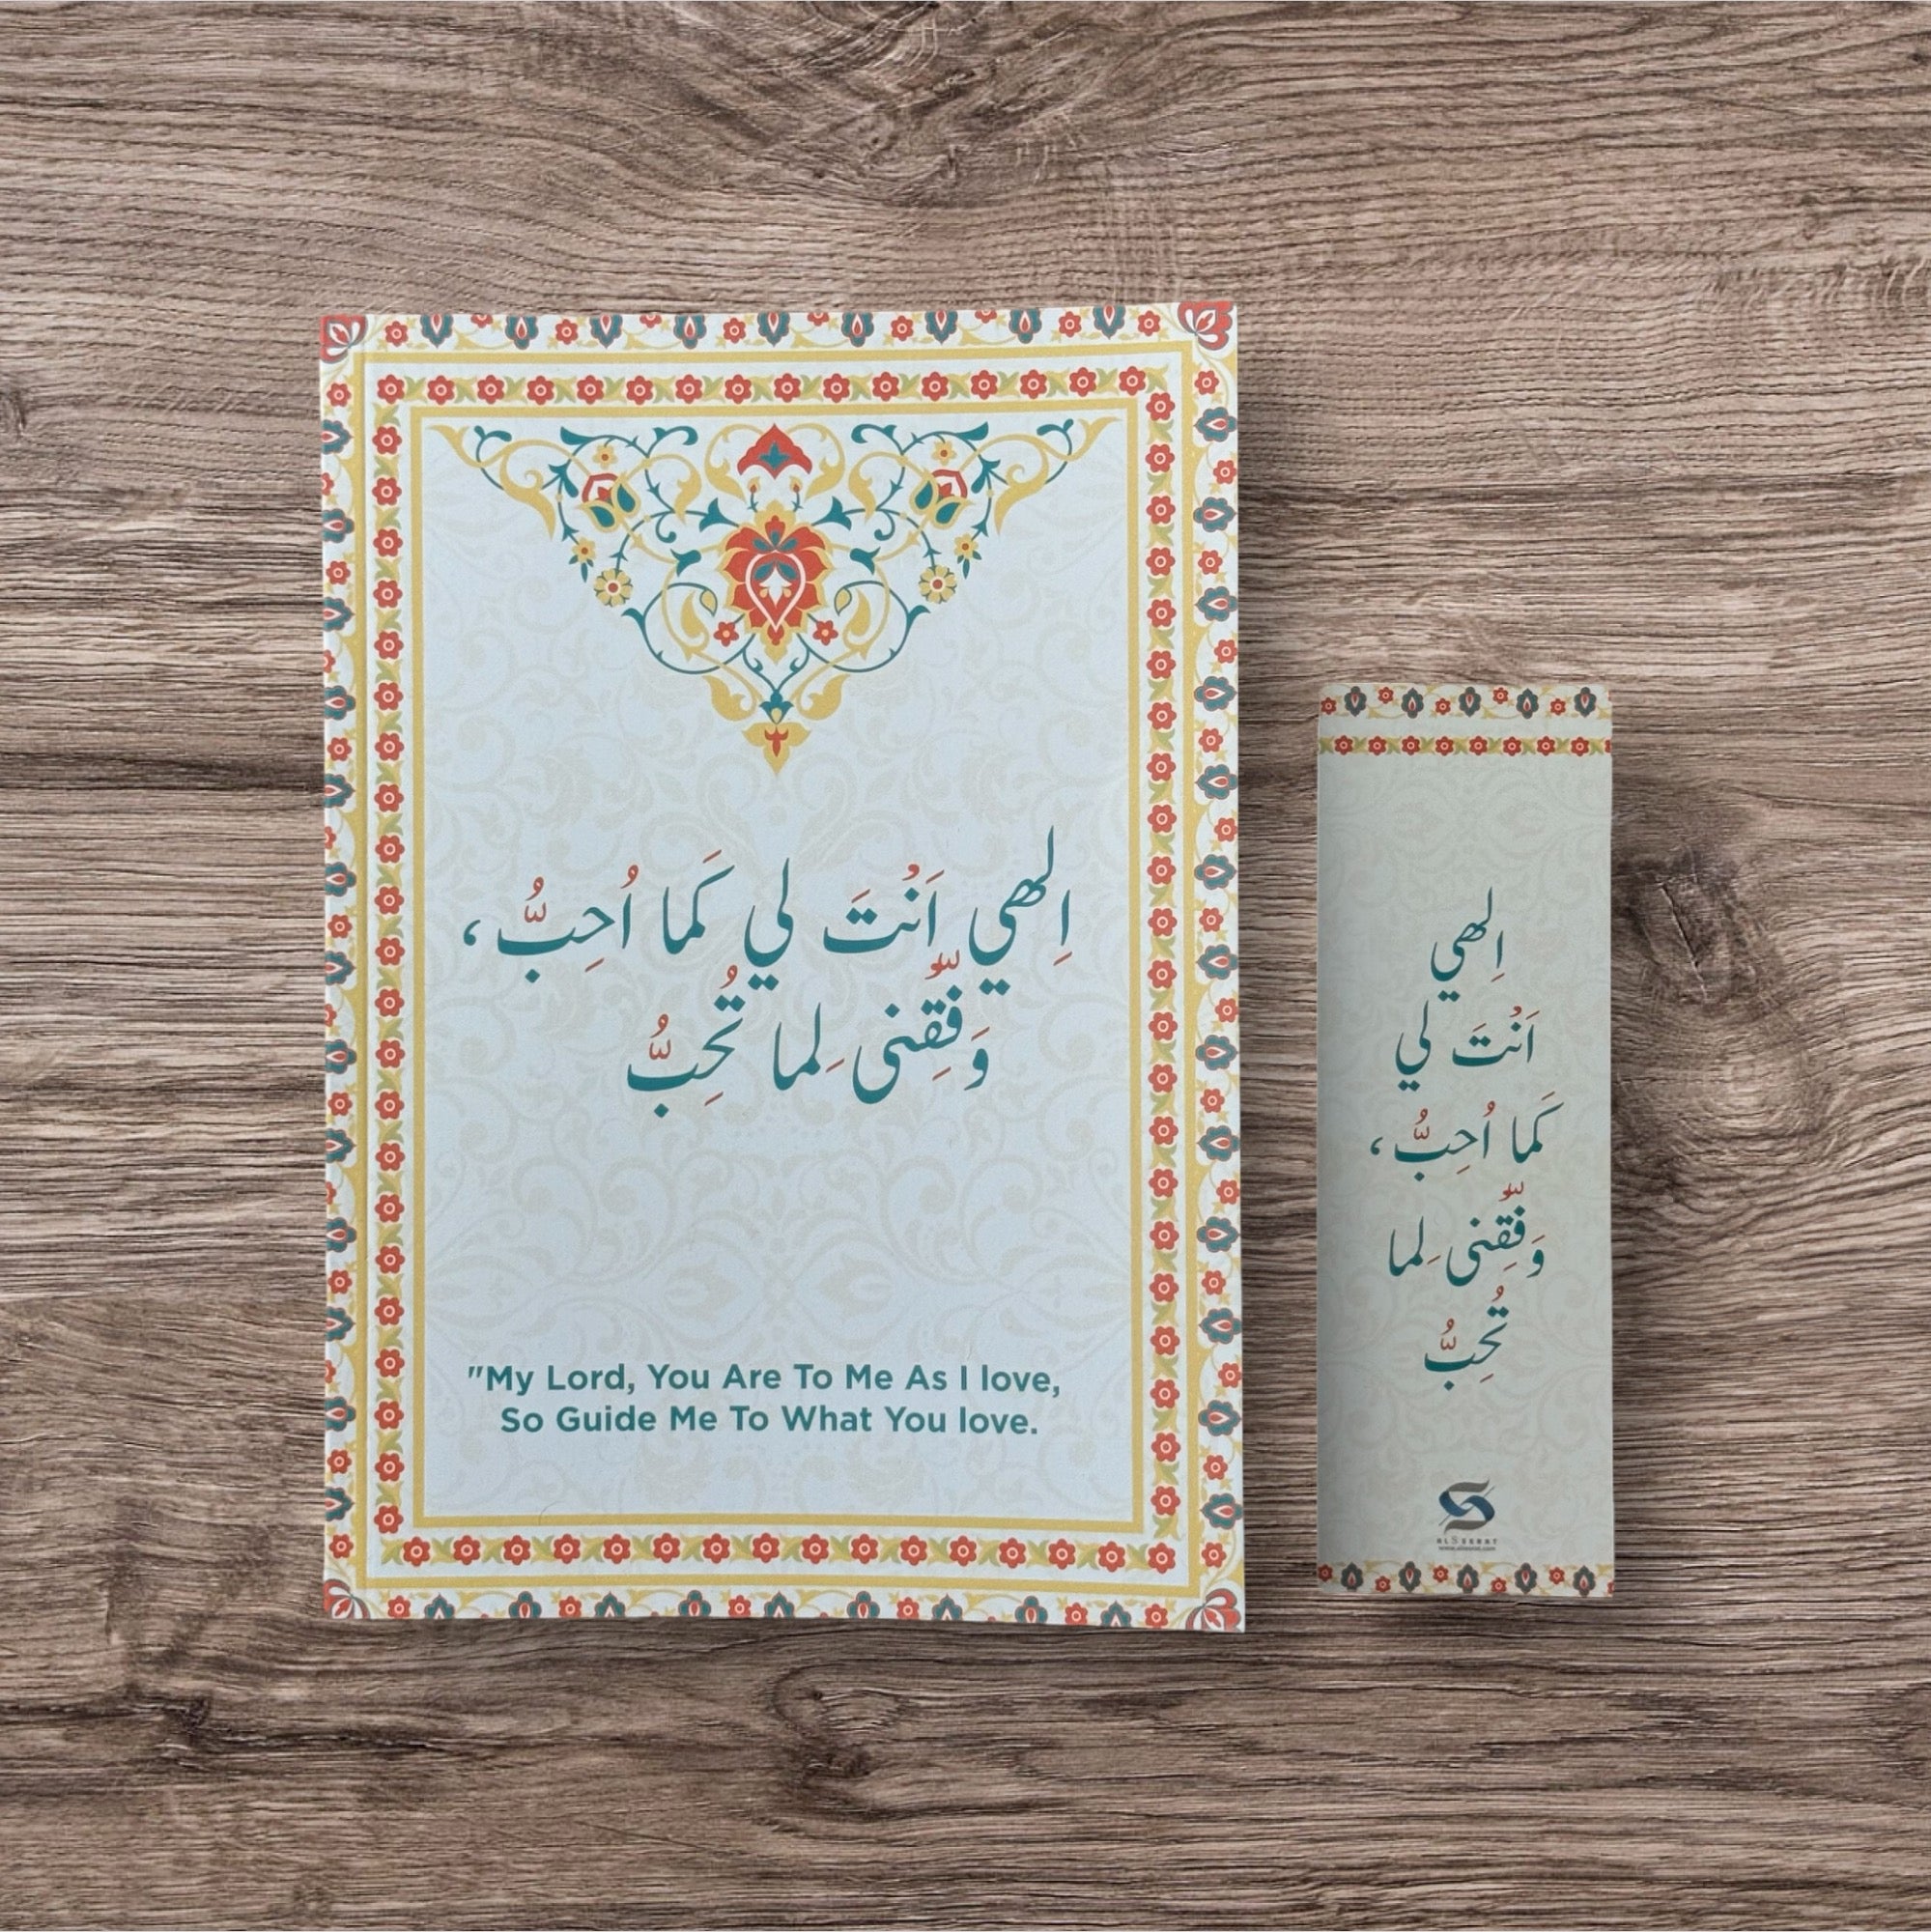 اِلهي اَنْتَ لي كَما اُحِبُّ،
وَفِّقني لِما تُحِبُّ
"My Lord, You Are To Me As I love,
So Guide Me To What You love.
اِلهي
اَنْتَ لي
كَما اُحِبُّ،
وَفِّقني لِما
تُحِبُّ